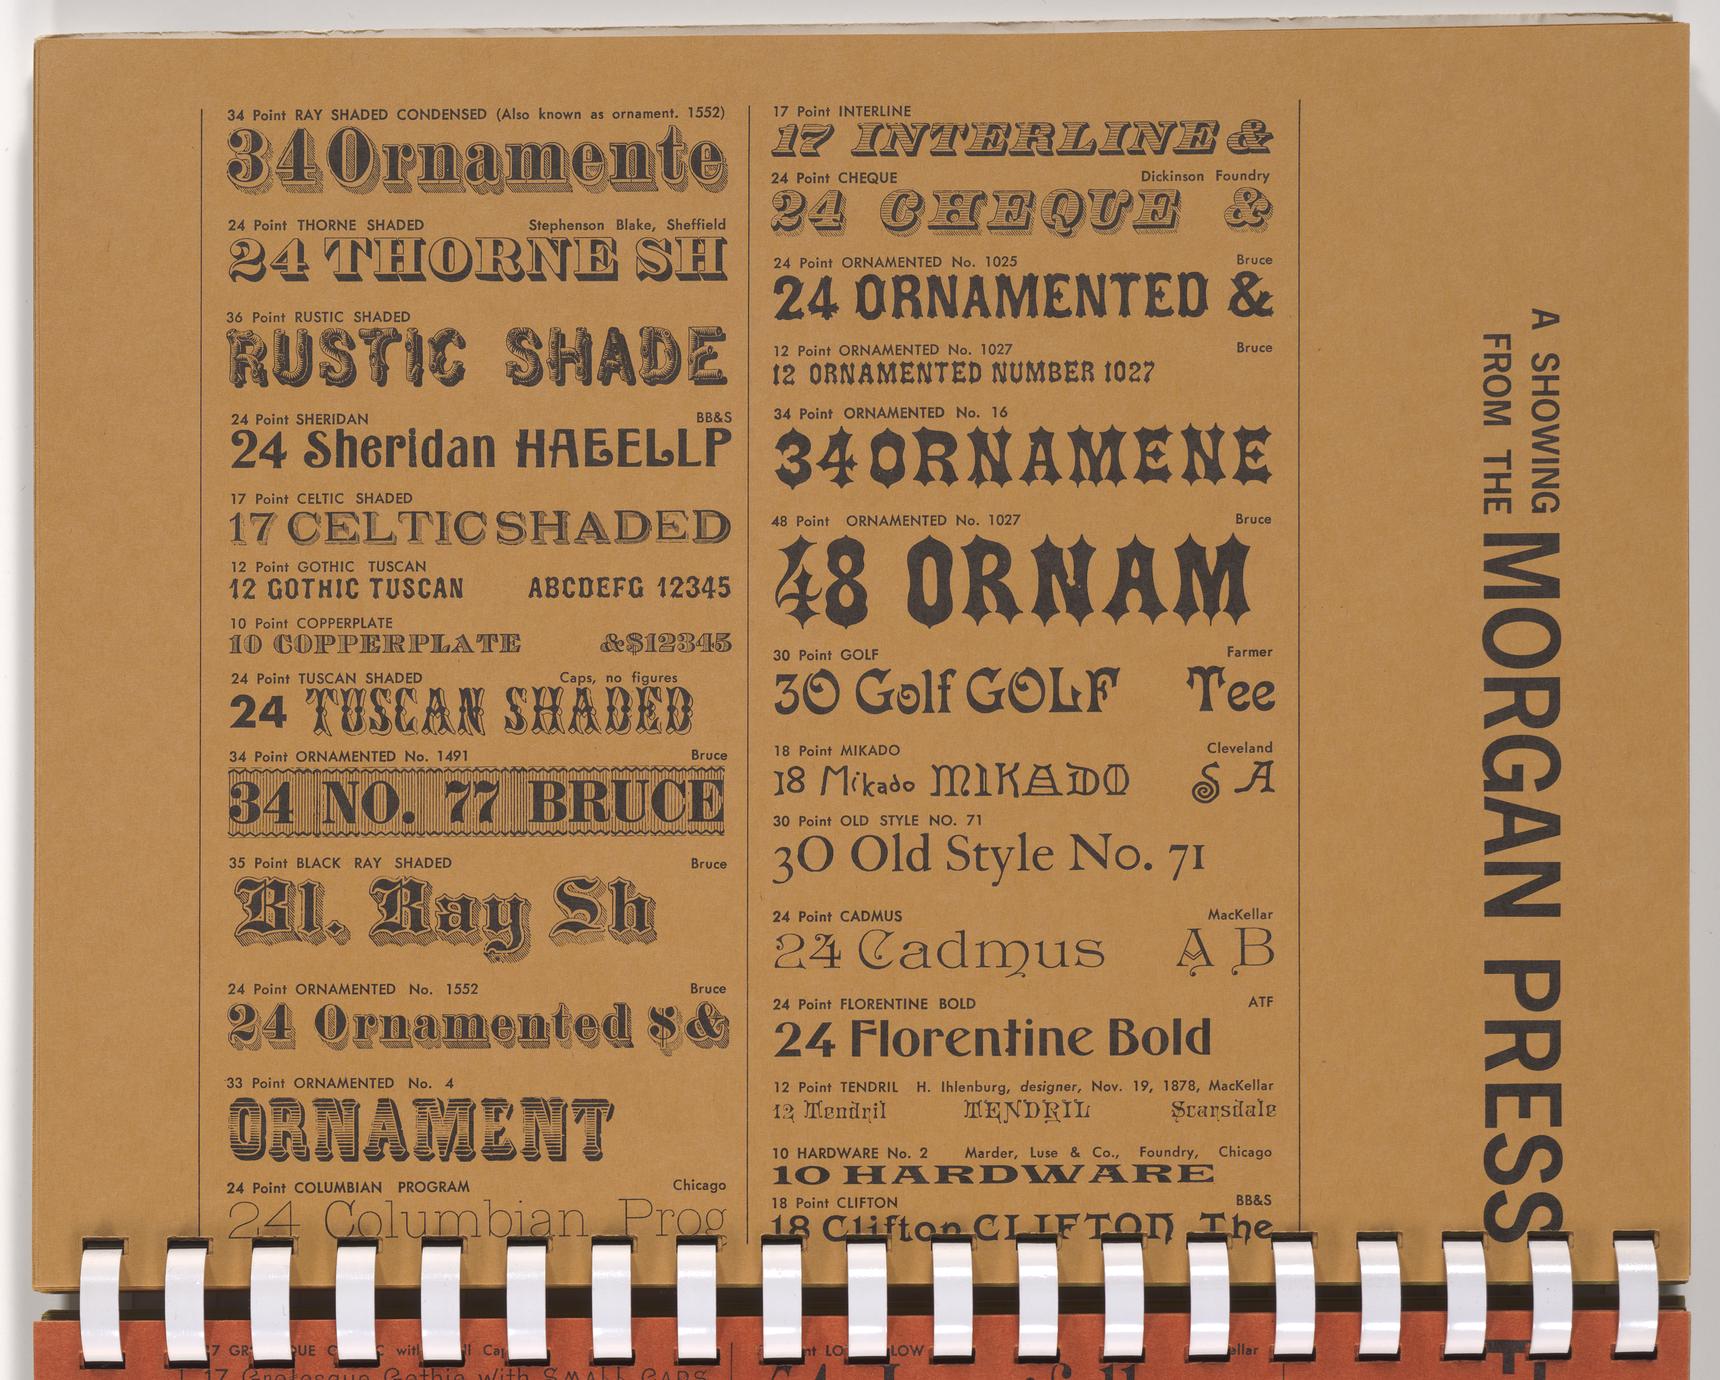 34 Point RAY SHADED CONDENSED (Also known as ornament. 1552)
34 Ornamente
24 Point THORNE SHADED Stephenson Blake, Sheffield
24 THORNE SH
36 Point RUSTIC SHADED
RUSTIC SHADE
24 Point SHERIDAN BB&S
24 Sheridan HAEELLP
17 Point CELTIC SHADED
17 CELTIC SHADED
12 Point GOTHIC TUSCAN
12 GOTHIC TUSCAN ABCDEFG 12345
10 Point COPPERPLATE
10 COPPERPLATE &$12345
24 Point TUSCAN SHADED Caps, no figures
24 TUSCAN SHADED
34 Point ORNAMENTED No. 1491 Bruce
34 NO. 77 BRUCE
35 Point BLACK RAY SHADED Bruce
Bl. Ray Sh
24 Point ORNAMENTED No. 1552 Bruce
24 Ornamented $&
33 Point ORNAMENTED No. 4
ORNAMENT
24 Point COLUMBIAN PROGRAM Chicago
24 Columbian Prog
17 Point INTERLINE
17 INTERLINE &
24 Point CHEQUE Dickinson Foundry
24 CHEQUE &
24 Point ORNAMENTED No. 1025 Bruce
24 ORNAMENTED &
12 Point ORNAMENTED No. 1027 Bruce
12 ORNAMENTED NUMBER 1027
34 Point ORNAMENTED No. 16
34 ORNAMENE
48 Point ORNAMENTED No. 1027 Bruce
48 ORNAM
30 Point GOLF Farmer
30 Golf GOLF Tee
18 Point MIKADO Cleveland
18 Mikado MIKADO S A
30 Point OLD STYLE NO. 71
30 Old Style No. 71
24 Point CADMUS MacKellar
24 Cadmus A B
24 Point FLORENTINE BOLD ATF
24 Florentine Bold
12 Point TENDRIL H. Ihlenburg, designer, Nov. 19, 1878, MacKellar
12 Tendril TENDRIL Scarsdale
10 HARDWARE No. 2 Marder, Luse & Co., Foundry, Chicago
10 HARDWARE
18 Point CLIFTON BB&S
18 Clifton CLIFTON The
A SHOWING
FROM THE
MORGAN PRESS
17 Grotesque Gothic with SMALL CAPS